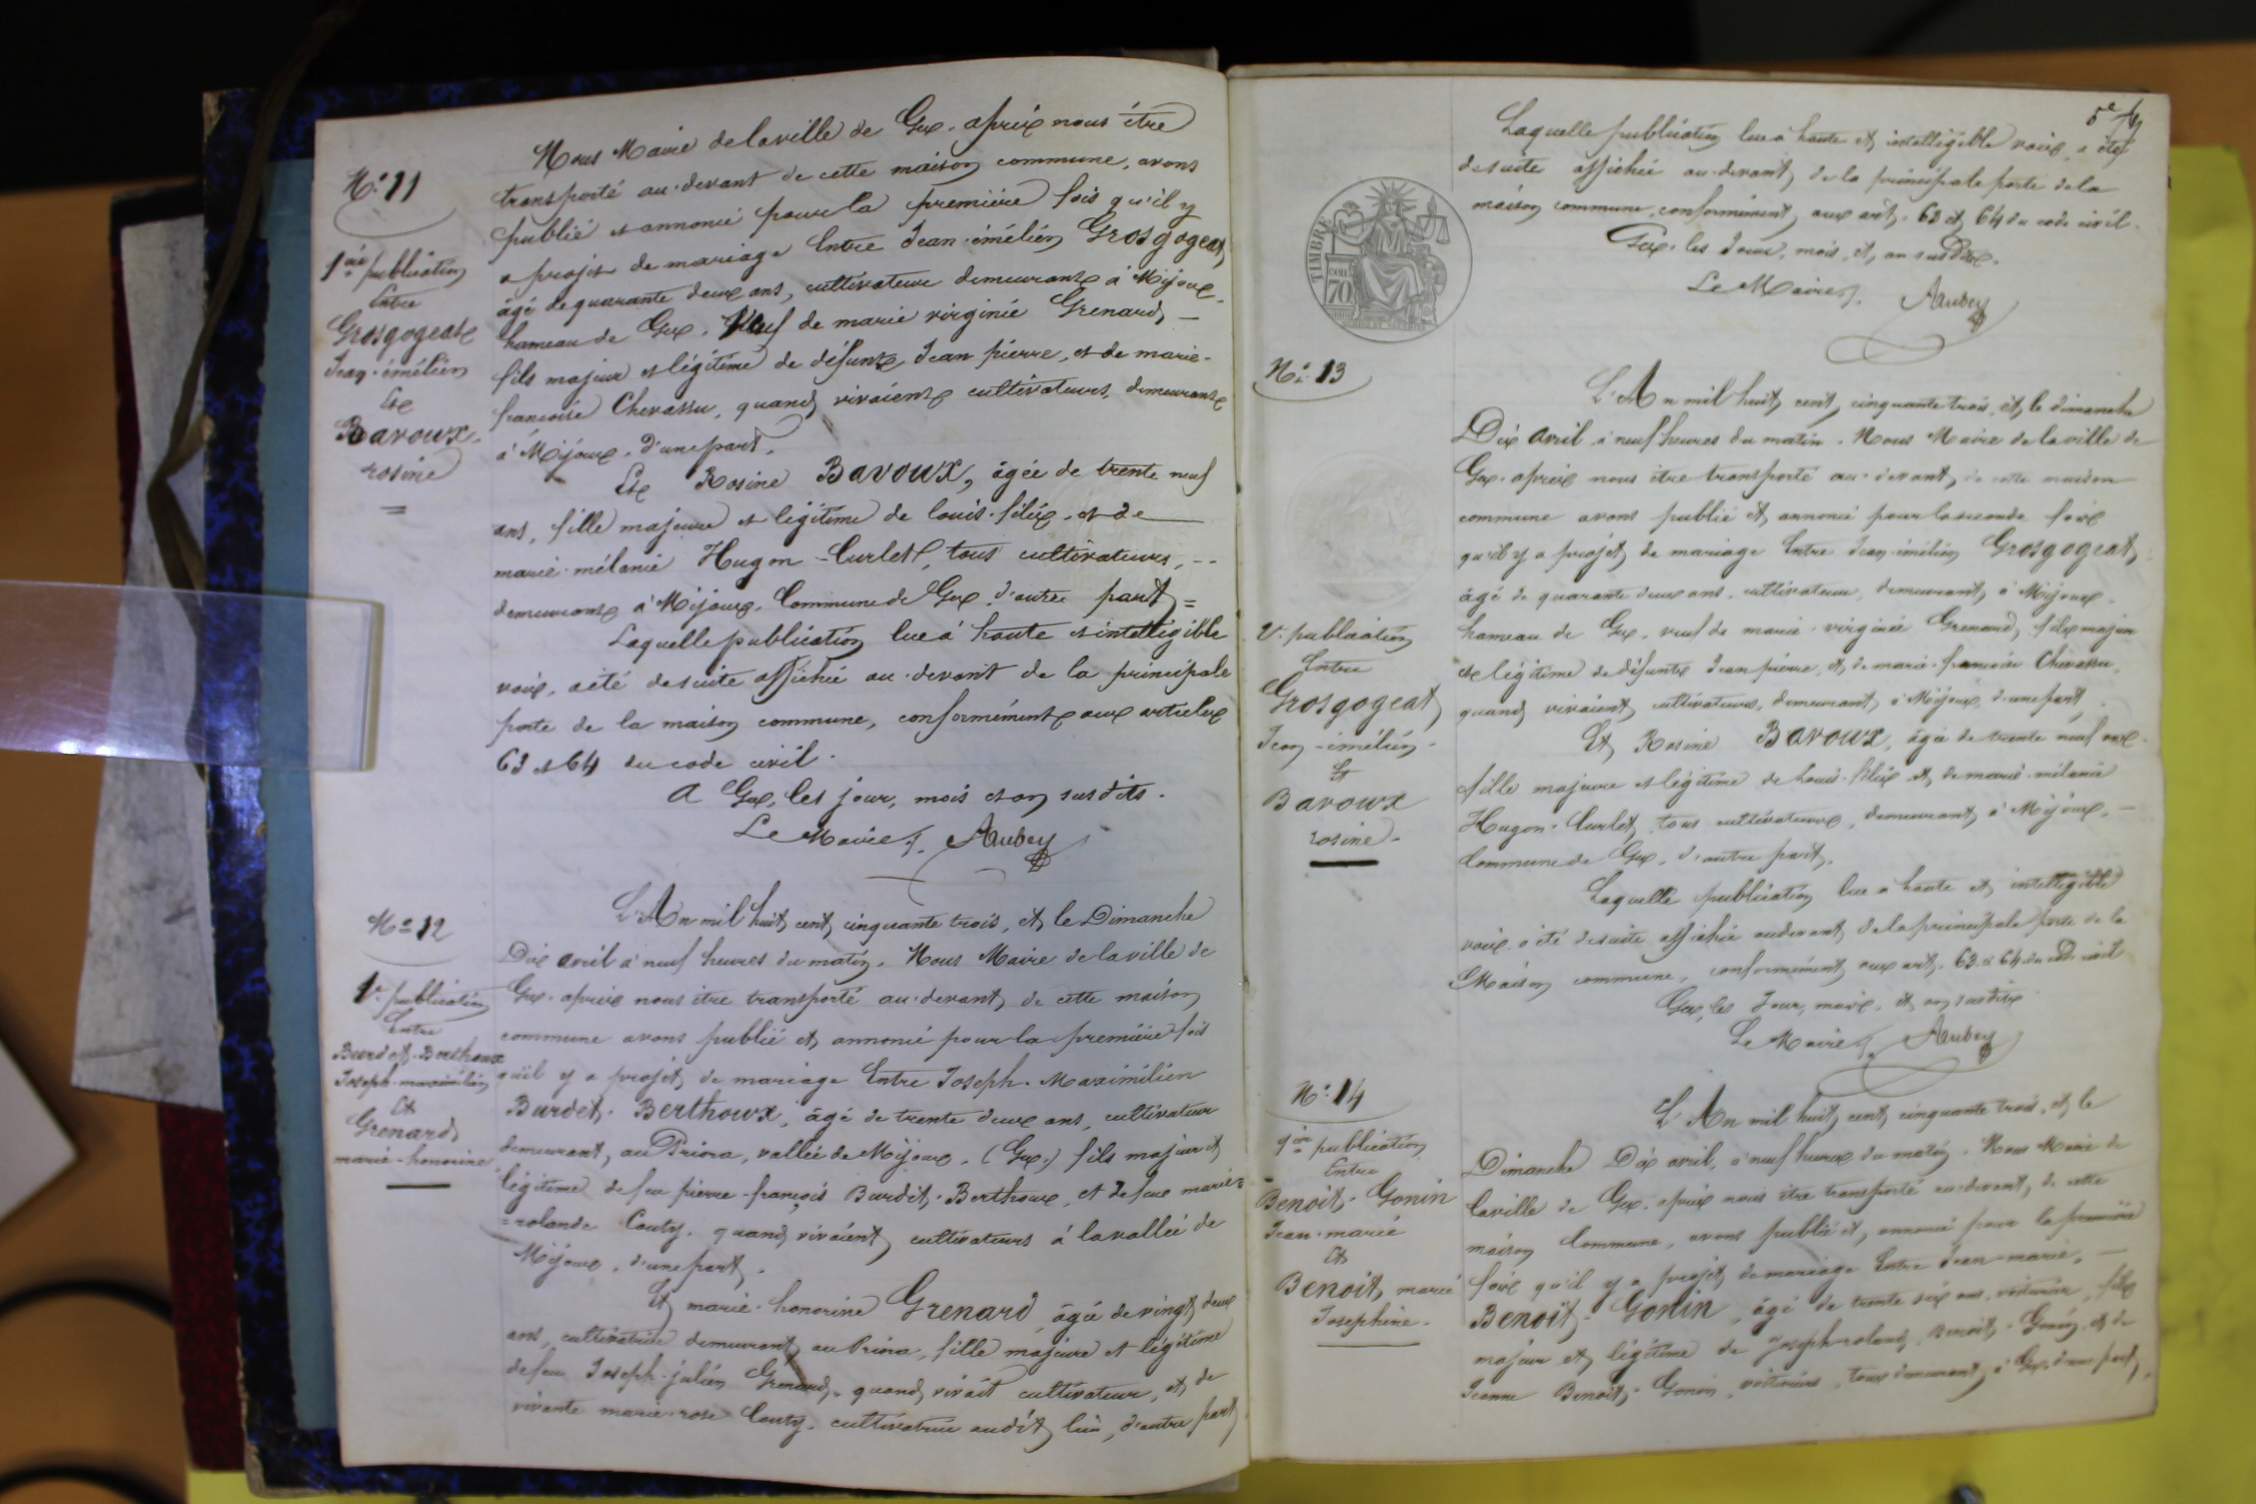 Nous Maire de la ville de Gex, après nous être
N° 11
transporté au-devant de cette maison commune, avons
publié et annoncé pour la première fois qu'il y
a projet de mariage Entre Jean-émélien Grosgogeat,
âgé de quarante deux ans, cultivateur demeurant à Mijoux,
hameau de Gex, Veuf de marie virginie Grenard, —
fils majeur et légitime de défunts Jean pierre, et de marie-
francoise Chevassu, quand vivaient cultivateurs, demeurant
à Mijoux, d'une part.
1ère publication
Entre
Grosgogeat
Jean-émélien
Et
Bavoux
rosine
Et Rosine Bavoux, âgée de trente neuf
ans, fille majeure et légitime de louis-félix, et de
marie-mélanie Hugon-Curlet, tous cultivateurs, --
demeurant à Mijoux, Commune de Gex, d'autre part =
Laquelle publication lue à haute et intelligible
voix, a été desuite affichée au-devant de la principale
porte de la maison commune, conformément aux articles
63 et 64 du code civil.
A Gex, les jour, mois et an susdits.
Le Maire, Aubry
N° 12
L'An mil huit cent cinquante trois, et le Dimanche
Dix avril à neuf heures du matin, Nous Maire de la ville de
Gex, après nous être transporté au-devant de cette maison
commune avons publié et annoncé pour la première fois
qu'il y a projet de mariage Entre Joseph-Maximilien
Burdet-Berthoux, âgé de trente deux ans, cultivateur
demeurant au Priora, vallée de Mijoux, (Gex.) fils majeur et
légitime de feu pierre-françois Burdet-Berthoux, et de feue marie-
=rolande Couty, quand vivaient cultivateurs à la vallée de
Mijoux, d'une part.
1e publication
Entre
Burdet-Berthoux
Joseph-maximilien
Et
Grenard
marie-honorine
Et marie-honorine Grenard, âgée de vingt deux
ans, cultivatrice demeurant au Priora, fille majeure et légitime
de feu Joseph-julien Grenard, quand vivait cultivateur, et de
vivante marie-rose Couty, cultivatrice audit lieu, d'autre part
5e
Laquelle publication lue à haute et intelligible voix, a été
desuite affichée au-devant de la principale porte de la
maison commune, conformément aux art. 63 et 64 du code civil.
Gex, les Jour, mois, et, an susdits.
Le Maire, Aubry
TIMBRE
70
N° 13
L'An mil huit cent cinquante trois, et le dimanche
Dix avril à neuf heures du matin. Nous Maire de la ville de
Gex, après nous être transporté au-devant de cette maison
commune avons publié et annoncé pour la seconde fois
qu'il y a projet de mariage Entre Jean-émélien Grosgogeat,
âgé de quarante deux ans, cultivateur, demeurant à Mijoux,
hameau de Gex, veuf de marie-virginie Grenard, fils majeur
et légitime de défunts Jean pierre, et de marie-francoise Chevassu,
quand vivaient cultivateurs, demeurant à Mijoux, d'une part.
2e publication
Entre
Grosgogeat
Jean-émélien-
Et
Bavoux
rosine-
Et Rosine Bavoux, âgée de trente neuf ans,
fille majeure et légitime de Louis-félix et de marie-mélanie
Hugon-Curlet, tous cultivateurs, demeurant à Mijoux, —
Commune de Gex, d'autre part.
Laquelle publication lue a haute et intelligible
voix a été desuite affichée audevant de la principale porte de la
Maison commune, conformément aux art. 63 et 64 du code civil
Gex, les Jour, mois, et an susdits
Le Maire, Aubry
N° 14
L'An mil huit cent cinquante trois, et le
Dimanche Dix avril, à neuf heures du matin. Nous Maire de
la ville de Gex, après nous être transporté au-devant de cette
maison Commune, avons publié et annoncé pour la première
fois qu'il y a projet de mariage Entre Jean-marie, —
Benoit-Gonin, âgé de trente six ans, voiturier, fils
majeur et légitime de Joseph-roland Benoit-Gonin et de
Jeanne Benoit-Gonin, voituriers, tous demeurant à Gex, d'une part,
1ère publication
Entre
Benoit-Gonin
Jean-marie
Et
Benoit, marie
Josephine-